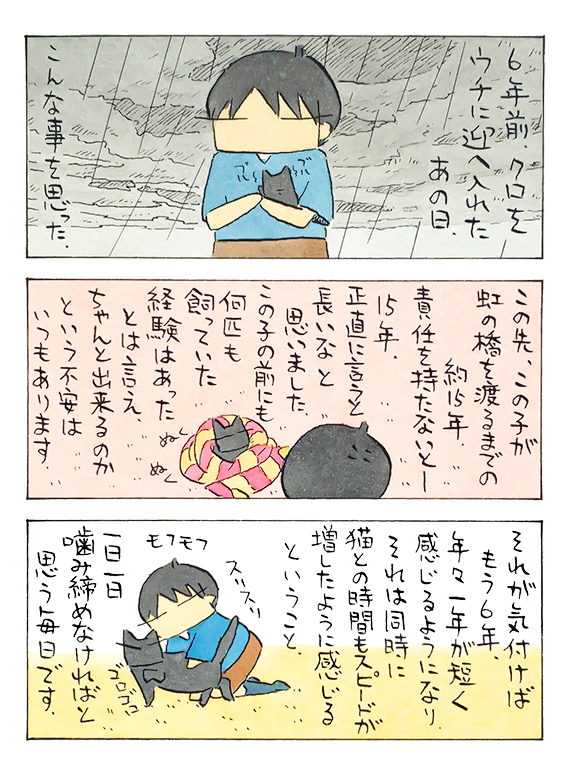 6年前、クロを
ウチに迎へ入れた
あの日、
こんな事を思った、
ぶ〜
ぶ〜
この先、この子が
虹の橋を渡るまでの
約15年、
責任を持たないとー
15年、
正直に言うと
長いなと
思いました、
この子の前にも
何匹も
飼っていた
経験はあった
とは言え、
ちゃんと出来るのか
という不安は
いつもあります
ぬく
ぬく
それが気付けば
もう6年、
年々一年が短く
感じるようになり、
それは同時に
猫との時間もスピードが
増したように感じる
ということ、
スリスリ
モフモフ
ゴロゴロ
一日一日
噛み締めなければと
思う毎日です、